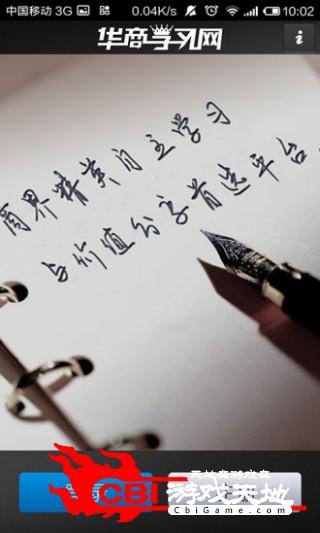 中国移动 3G 0.04K/s 10:02
华商学习网
i
商界精英自主学习
与价值分享首选平台
CBI 游戏天地
CbiGame.com